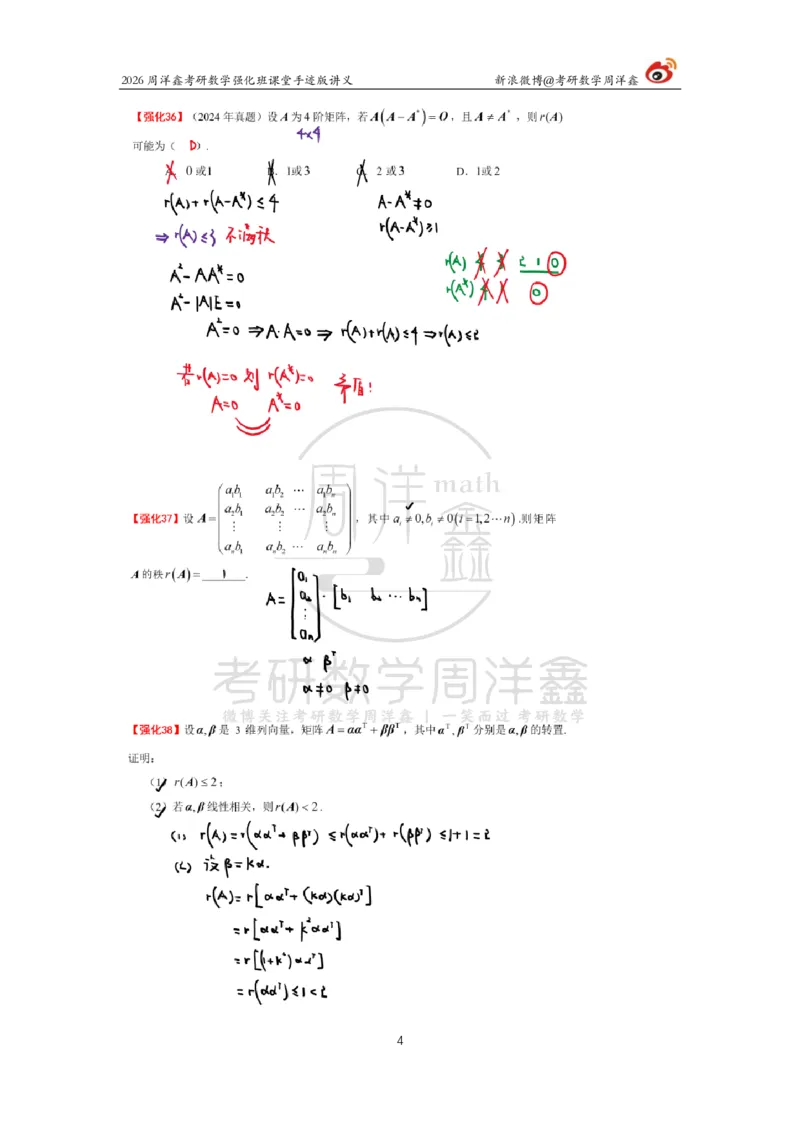 2026周洋鑫考研数学强化班课堂手迹版讲义 新浪微博@考研数学周洋鑫
【强化36】（2024年真题）设A为4阶矩阵，若A(A−A*)=O，且A≠A*，则r(A)
4×4
可能为（ D ）.
A. 0或1 B. 1或3 C. 2或3 D. 1或2
r(A)+r(A-A*)≤4 A-A*≠0
⇒r(A)≤3 不满秩 r(A-A*)≥1
r(A) 4 3 2 1 0
r(A*) 4 1 0
A²-AA*=0
A²-|A|E=0
A²=0 ⇒A·A=0 ⇒ r(A)+r(A)≤4 ⇒r(A)≤2
若r(A)=0 则 r(A*)=0 矛盾!
A=0 A*=0
周洋鑫 math
a₁b₁ a₁b₂ ⋯ a₁bₙ
a₂b₁ a₂b₂ ⋯ a₂bₙ
【强化37】设A= ⋮ ⋮ ⋮ ，其中aᵢ≠0,bᵢ≠0(i=1,2⋯n).则矩阵
aₙb₁ aₙb₂ ⋯ aₙbₙ
A的秩r(A)= 1 .
A= [a₁ a₂ ⋮ aₙ]·[b₁ b₂ ⋯ bₙ]
α βᵀ
α≠0 β≠0
考研数学周洋鑫
微博关注考研数学周洋鑫 | 一笑而过 考研数学
【强化38】设α,β是 3 维列向量，矩阵A=ααᵀ+ββᵀ，其中αᵀ,βᵀ分别是α,β的转置.
证明：
（1）r(A)≤2；
（2）若α,β线性相关，则r(A)<2.
(1) r(A)=r(ααᵀ+ββᵀ)≤r(ααᵀ)+r(ββᵀ)≤1+1=2
(2) 设β=kα.
r(A)=r[ααᵀ+(kα)(kα)ᵀ]
=r[ααᵀ+k²ααᵀ]
=r[(1+k²)ααᵀ]
=r(ααᵀ)≤1<2
4